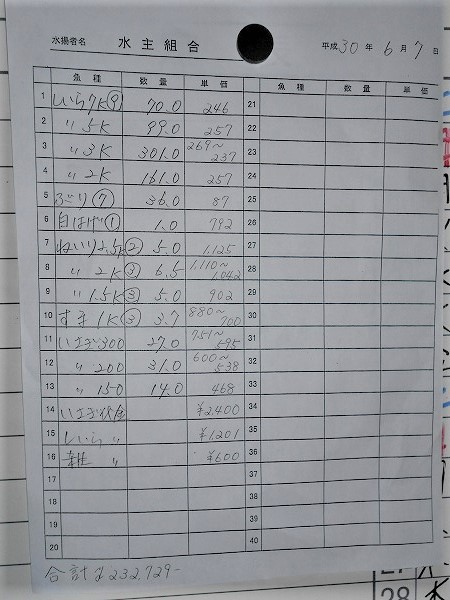 水揚者名 水主組合 平成30年6月7日
魚種 数量 単価 魚種 数量 単価
1 しいら7K⑨ 70.0 246 21
2 〃5K 99.0 257 22
3 〃3K 301.0 269〜237 23
4 〃2K 161.0 257 24
5 ぶり⑦ 36.0 87 25
6 白はげ① 1.0 792 26
7 ねいり2.5K② 5.0 1,125 27
8 〃2K③ 6.5 1,110〜1,042 28
9 〃1.5K③ 5.0 902 29
10 すま1K③ 3.7 880〜700 30
11 いさぎ300 27.0 751〜595 31
12 〃200 31.0 600〜538 32
13 〃150 14.0 468 33
14 いさぎ ¥2,400 34
15 しいら〃 ¥1,201 35
16 雑〃 ¥600 36
17 37
18 38
19 39
20 40
合計 ¥232,729-
28